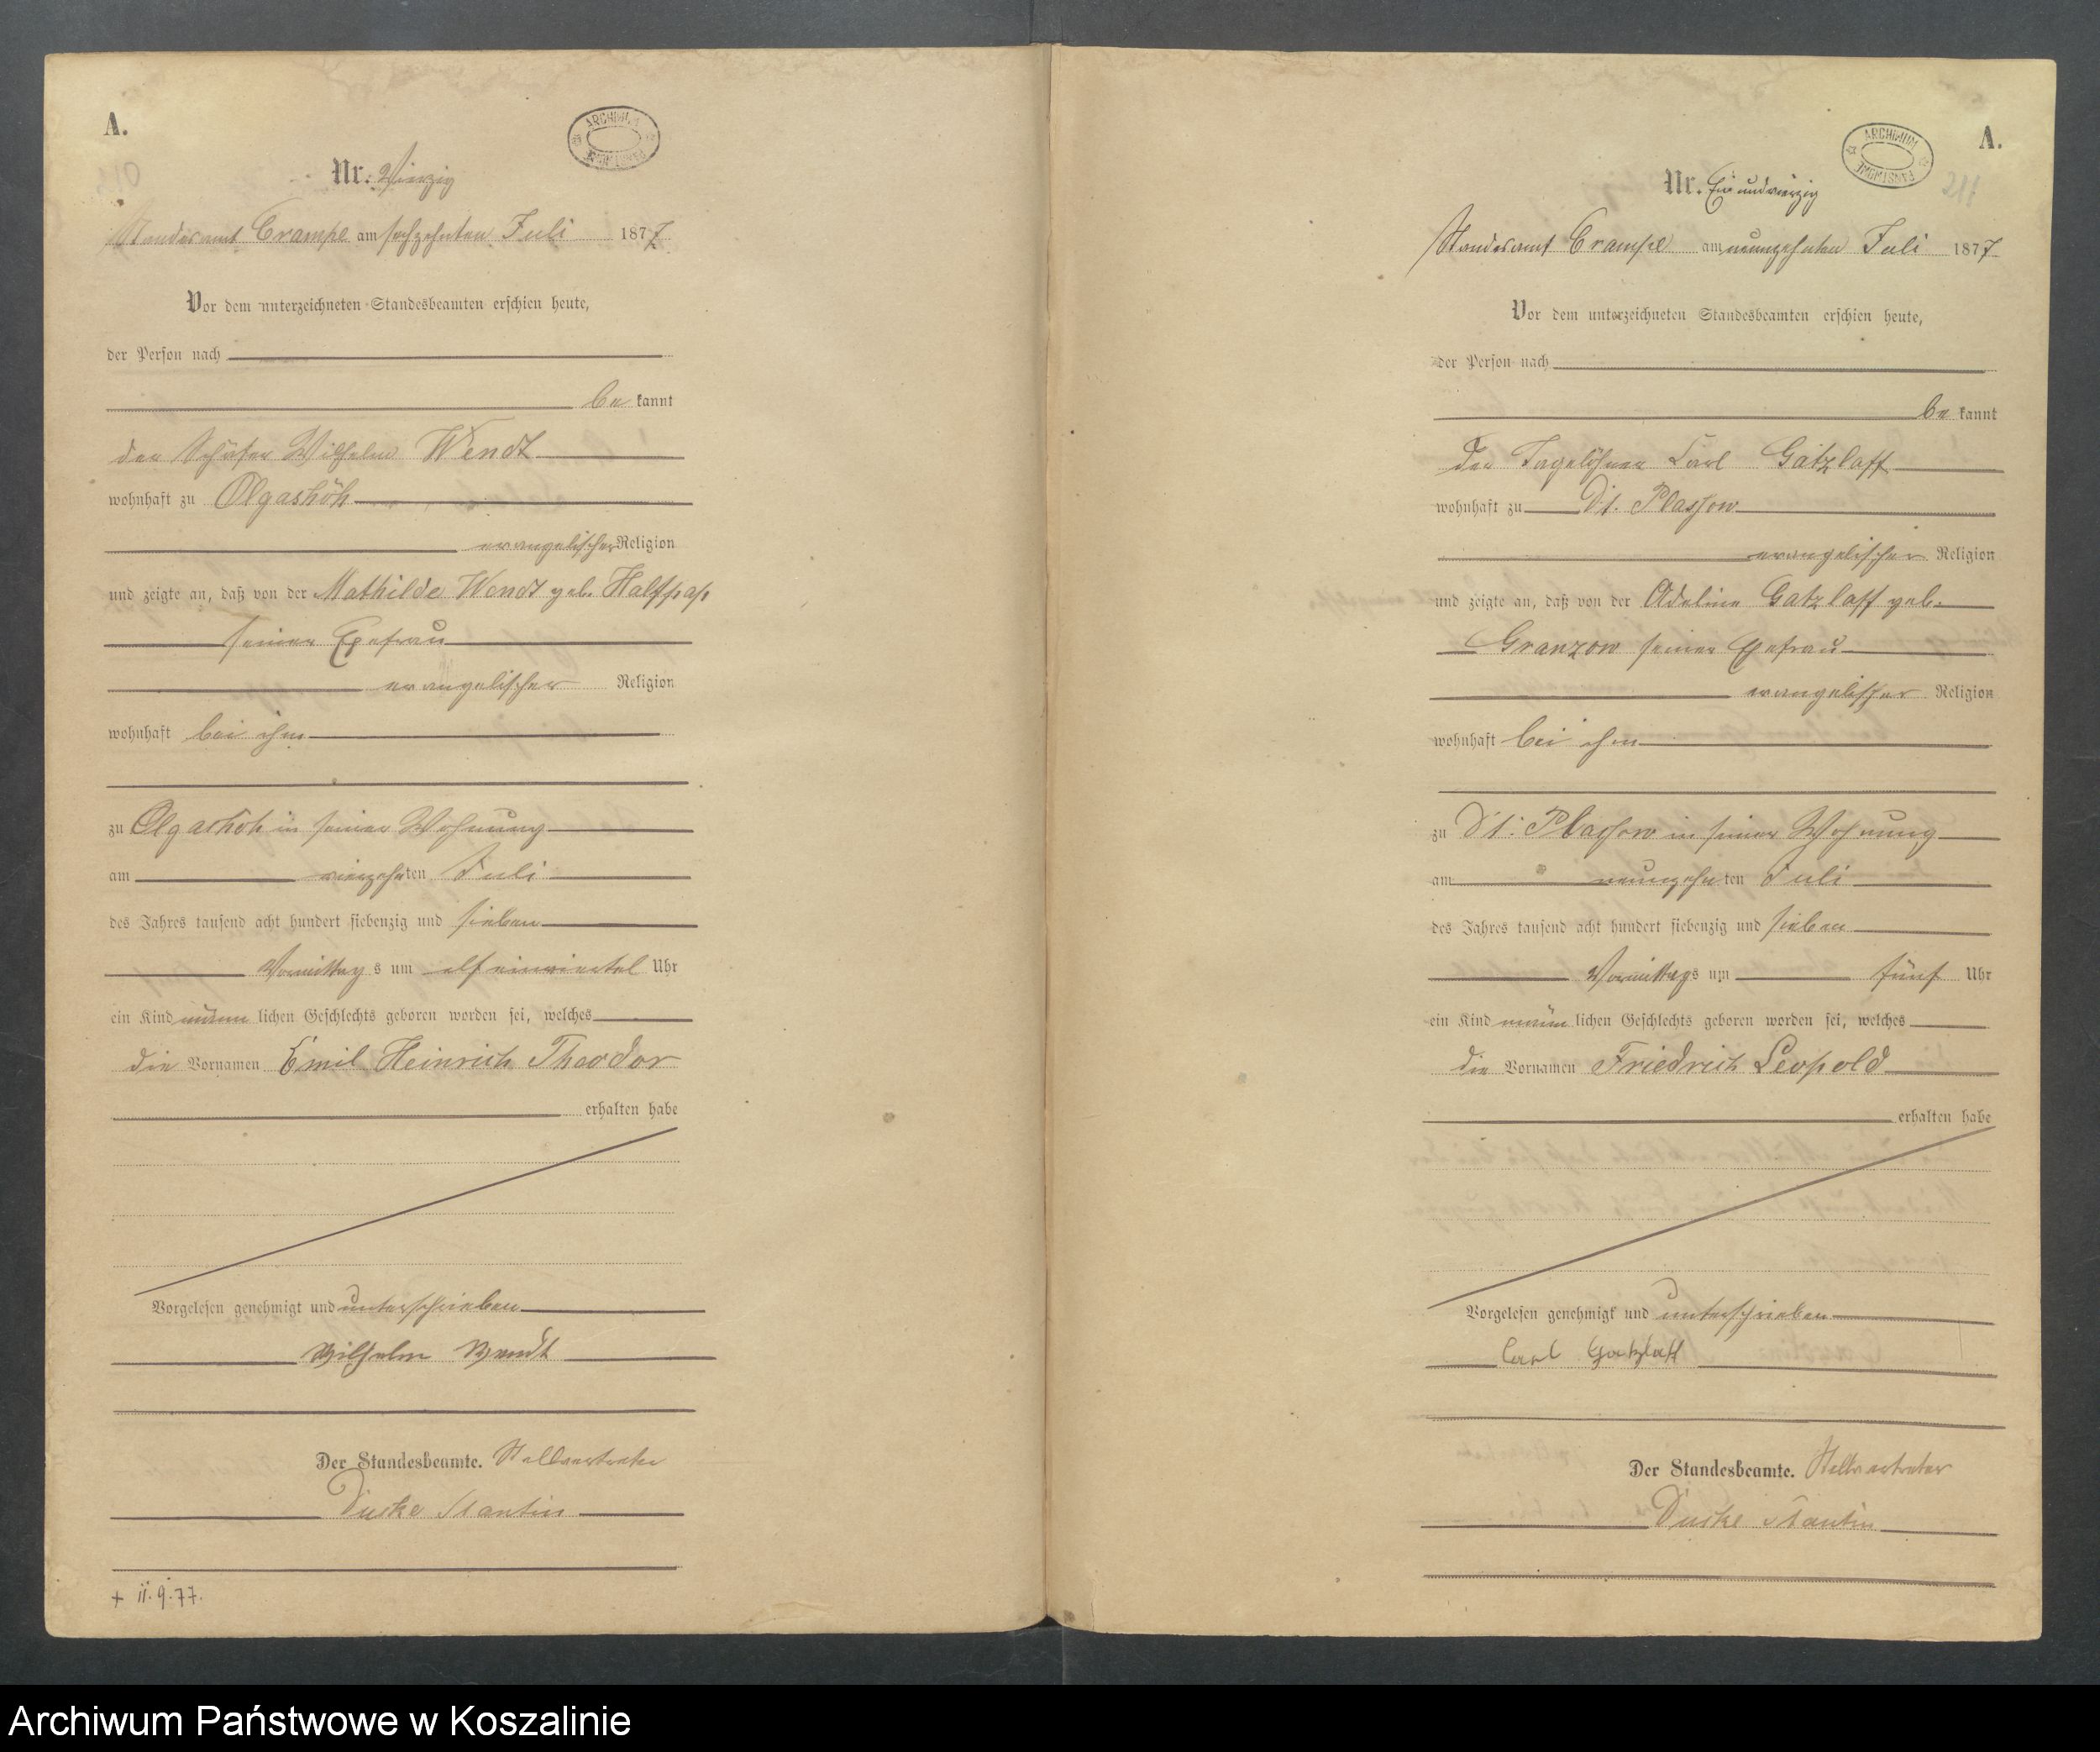 A.
ARCHIWUM PAŃSTWOWE
Nr. Vierzig
Standesamt Crampe am sechzehnten Juli 1877
Vor dem unterzeichneten Standesbeamten erschien heute,
der Person nach
be kannt
der Schäfer Wilhelm Wendt
wohnhaft zu Olgashöh
evangelischer Religion
und zeigte an, daß von der Mathilde Wendt geb. Halfpap
seiner Ehefrau
evangelischer Religion
wohnhaft bei ihm
zu Olgashöh in seiner Wohnung
am vierzehnten Juli
des Jahres tausend acht hundert siebenzig und sieben
Vormittags um elf einviertel Uhr
ein Kind männlichen Geschlechts geboren worden sei, welches
die Vornamen Emil Heinrich Theodor
erhalten habe
Vorgelesen genehmigt und unterschrieben
Wilhelm Wendt
Der Standesbeamte. Stellvertreter
Duske
+ 11.9.77.
A.
ARCHIWUM PAŃSTWOWE
Nr. Ein und vierzig
Standesamt Crampe am neunzehnten Juli 1877
Vor dem unterzeichneten Standesbeamten erschien heute,
der Person nach
be kannt
Der Tagelöhner Carl Gatzlaff
wohnhaft zu Dt. Plassow
evangelischer Religion
und zeigte an, daß von der Adeline Gatzlaff geb.
Granzow seiner Ehefrau
evangelischer Religion
wohnhaft bei ihm
zu Dt. Plassow in seiner Wohnung
am neunzehnten Juli
des Jahres tausend acht hundert siebenzig und sieben
Vormittags um fünf Uhr
ein Kind männlichen Geschlechts geboren worden sei, welches
die Vornamen Friedrich Leopold
erhalten habe
Vorgelesen genehmigt und unterschrieben
Carl Gatzlaff
Der Standesbeamte. Stellvertreter
Duske
Archiwum Państwowe w Koszalinie